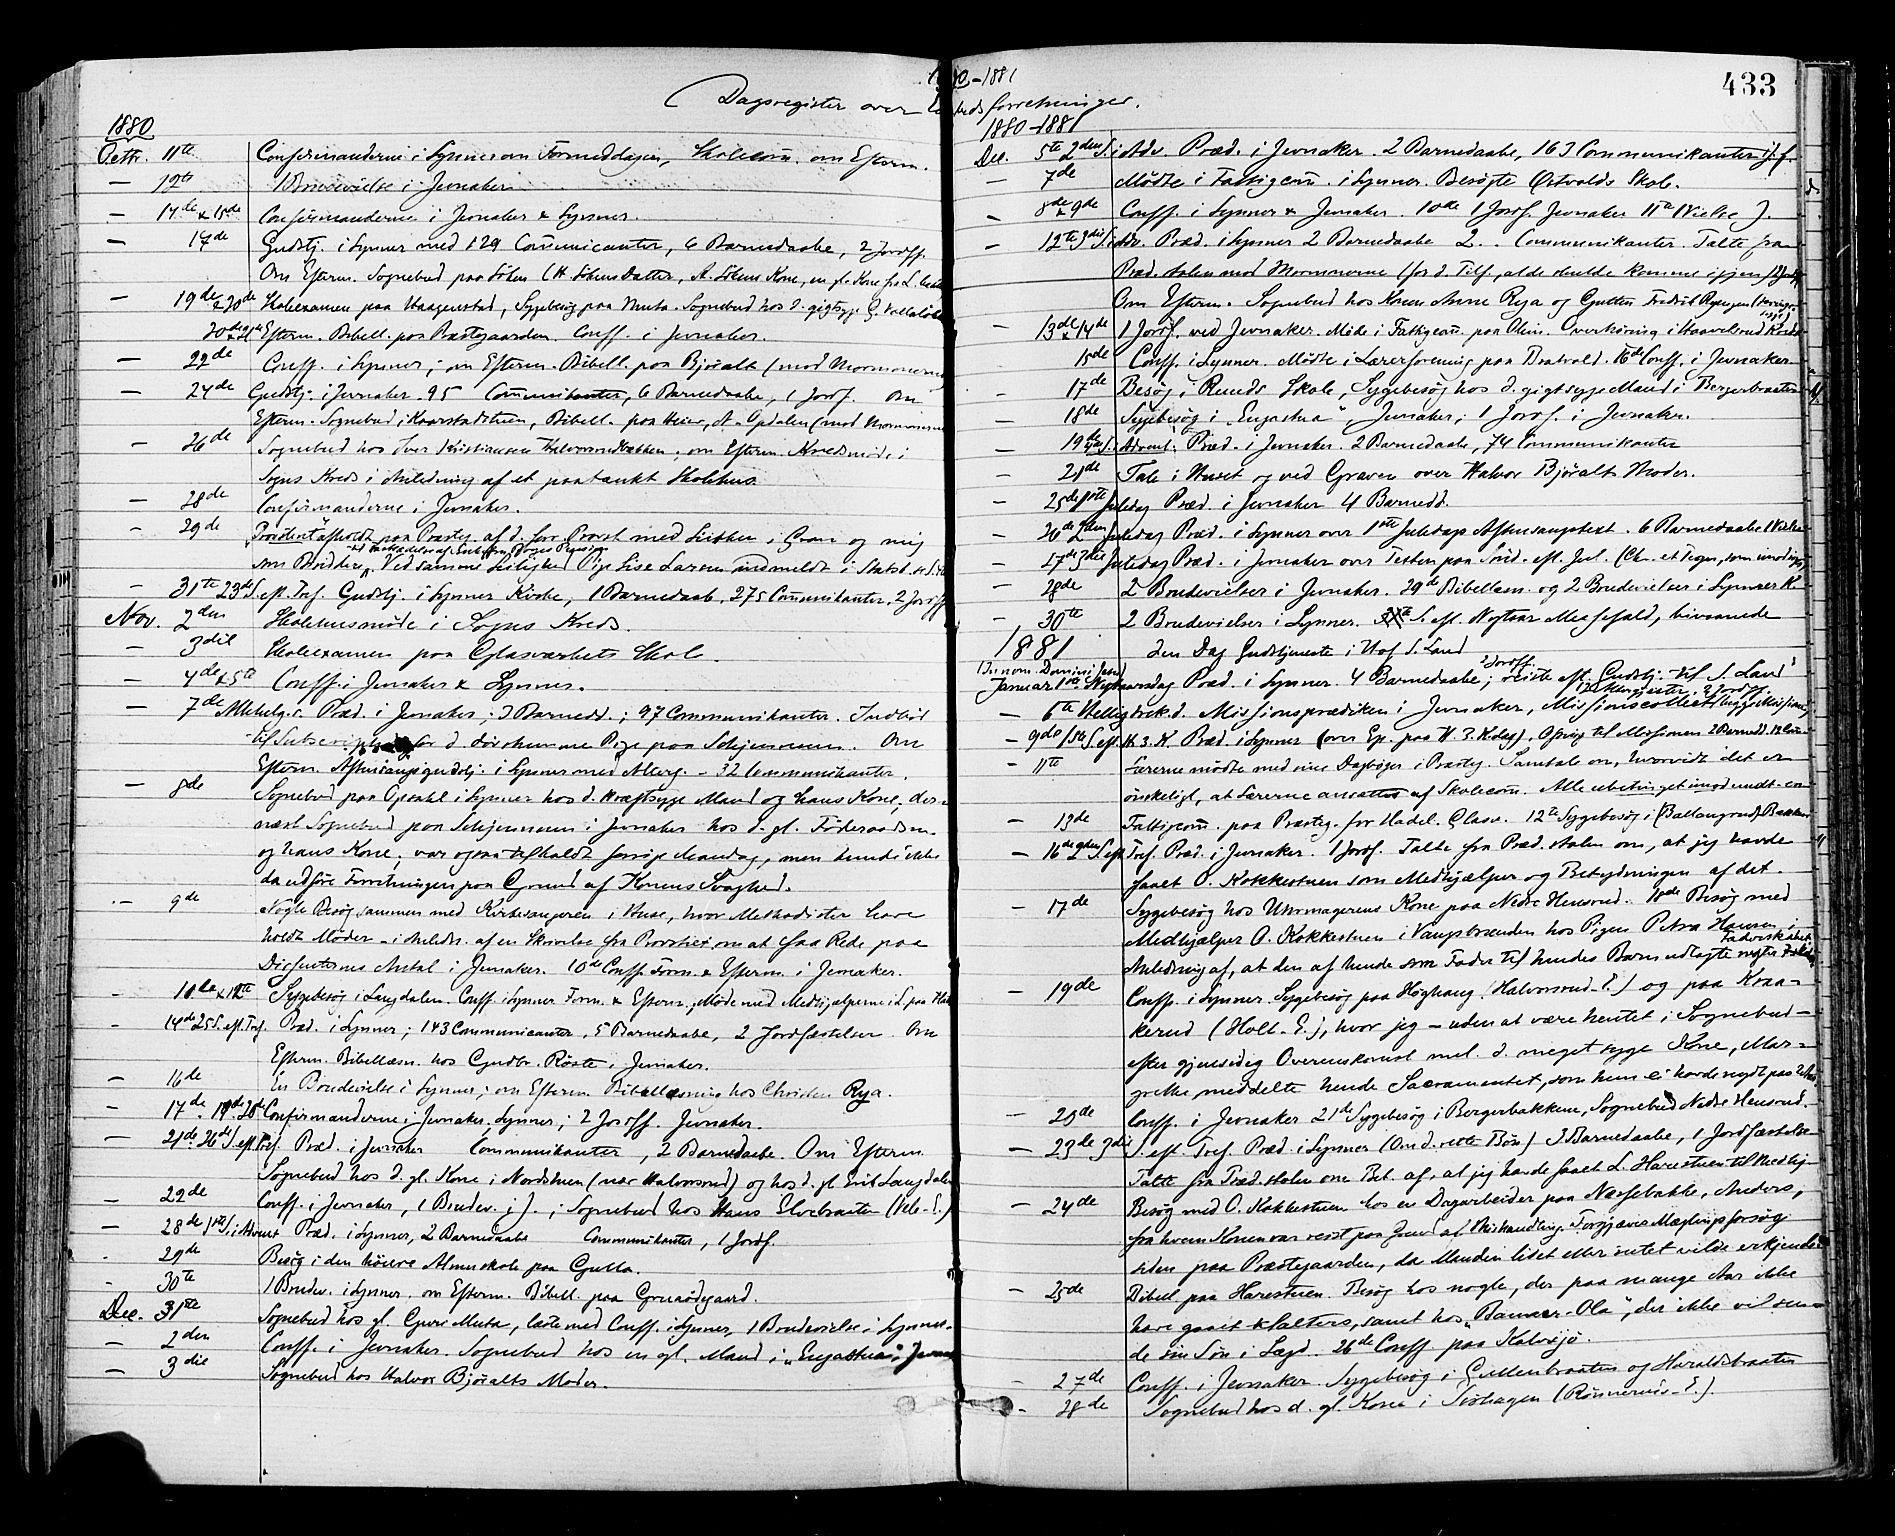 1880-1881
433
Dagsregister over Embedsforretninger.
1880
Octbr. 11te Confirmanderne i Lynner om Formiddagen, Skolecom̄. om Efterm.
— 12te 1 Brudevielse i Jevnaker
— 14de & 15de Confirmanderne i Jevnaker & Lynner.
— 17de Gudstj. i Lynner med 129 Com̄unicanter, 6 Barnedaabe, 2 Jordff.
Om Efterm. Sognebud paa Søhen (H. Søhens Datter, A. Søhens Kone, en gl. Kone fra
— 19de & 20de Skoleexamen paa Haagenstad, Sygebesøg paa Muta. Sognebud hos d. gigtsyge
20de & 21de Efterm. Bibell. paa Præstgaarden. Conff. i Jevnaker.
— 22de Conff. i Lynner; om Efterm. Bibell. paa Björalt (mod Mormonerne
— 24de Gudstj. i Jevnaker. 95 Com̄unikanter, 6 Barnedaabe, 1 Jordf. Om
Efterm. Sognebud i Kaarstadstuen, Bibell. paa Heier, N. Opdalen (mod Mormonerne
— 26de Sognebud hos Iver Kristiansen Halvorsrudbakken; om Efterm. Kredsmöde i
Sogns Kreds i Anledning af et paatænkt Skolehus
— 28de Confirmanderne i Jevnaker.
— 29de afholdt paa Præstg. af d. hr. Provst med Lister i Gran og mig
som Bisidder. Ved samme Leilighed Pige Lise Larsen indmeldt i Statsk.
— 31te 23de S. eft. Tref. Gudstj. i Lynner Kirke, 1 Barnedaab, 275 Com̄unikanter. 2 Jordff
Nov. 2den Skolehusmøde i Sogns Kreds.
— 3die Skoleexamen paa Glasværkets Skole.
— 4de & 5te Conff. i Jevnaker & Lynner.
— 7de Allehelg. s. Præd. i Jevnaker; 3 Barnedd.; 97 Communikanter. Indbød
til for d. døvstumme Pige paa Schjennum. Om
Efterm. Aftensangsgudstj. i Lynner med Alterg. – 32 Communikanter.
— 8de Sognebud paa Opdahl i Lynner hos d. kræftsyge Mand og hans Kone; der-
næst Sognebud paa Schjennum i Jevnaker hos d. gl. Föderaadsm.
og hans Kone; var ogsaa tilkaldt forrige Mandag, men kunde ikke
da udføre Forretningen paa Grund af Konens Svaghed.
— 9de Nogle Besøg sammen med Kirkesangeren i Huse, hvor Methodister have
holdt Møder – i Anledn. af en Skrivelse fra Provstiet om at faa Rede paa
Dissenternes Antal i Jevnaker. 10de Conff. Form. & Efterm. i Jevnaker.
— 11te & 12te Sygebesøg i Langdalen. Conff. i Lynner Form. & Efterm., Møde med Medhjælperne i L. paa
— 14de 25 S. eft. Tref. Præd. i Lynner; 143 Communicanter, 5 Barnedaabe, 2 Jordfæstelser. Om
Efterm. Bibellæsn. hos Gudbr. Röste i Jevnaker.
— 16de En Brudevielse i Lynner; om Efterm. Bibellæsning hos Christen Rya.
— 17de. 19de. 20de Confirmanderne i Jevnaker. Lynner; 2 Jordff. Jevnaker.
— 21de. 26de S. eft. Tref. Præd. i Jevnaker Communikanter, 2 Barnedaabe. Om Efterm.
Sognebud hos d. gl. Kone i Nordstuen (nær Halvorsrud) og hos d. gl. Erik Langdalen
— 22de Conff. i Jevnaker, 1 Brudev. i J.; Sognebud hos Hans Elvebraaten
— 28de 1ste S. i Advent Præd. i Lynner, 2 Barnedaabe Communikanter, 1 Jordf.
29de Besøg i den höiere Almueskole paa Gulla.
30te 1 Brudev. i Lynner. om Efterm. Bibell. paa Gruaödegaard.
Dec. 31te Sognebud hos gl. Guri Muta, læste med Conff. i Lynner, 1 Brudevielse i Lynner.
— 2den Conff. i Jevnaker. Sognebud hos en gl. Mand i „Engashua“; Jevnak
— 3die Sognebud hos Halvor Björalts Moder.
1880–1881
Dec. 5te 2den S. i Adv. Præd. i Jevnaker. 2 Barnedaabe, 163 Communikanter 1 J.f.
— 7de Mødte i Fattigcom̄. i Lynner. Besøgte Östvolds Skole.
— 8de & 9de Conff. i Lynner & Jevnaker. 10de 1 Jordf. Jevnaker 11te 1 Vielse J.
— 12te 3die S. i Adv. Præd. i Lynner 2 Barnedaabe 2 . . Communikanter. Talte fra
Præd. stolen mod Mormonerne (for d. Tilf., at de skulde komme igjen)
Om Efterm. Sognebud hos Konen Anne Rya og Gutten Fredrik
— 13de & 14de 1 Jordf. ved Jevnaker. Møde i Fattigcom̄. paa Olim. Overhøring i Haavelsrud Kreds
15de Conff. i Lynner. Mødte i Lærerforening paa Bratvold. 16de Conff. i Jevnaker
17de Besøg i Runds Skole, Sygebesøg hos d. gigtsyge Mand i Bergerbraaten
— 18de Sygebesøg i „Engashua“, Jevnaker; 1 Jordf. i Jevnaker.
— 19de 4de S. i Advent. Præd. i Jevnaker. 2 Barnedaabe, 74 Communikanter
— 21de Tale i Huset og ved Graven over Halvor Björalts Moder.
— 25de 1ste Juledag Præd. i Jevnaker 4 Barnedd.
— 26de 2den Juledag Præd. i Lynner over 1ste Juledags Aftensangstext. 6 Barnedaabe 1 Vielse
— 27de 3die Juledag Præd. i Jevnaker over Texten paa Sönd. eft. Jul. (Chr. et Tegn, som imodsiges)
— 28de 2 Brudevielser i Jevnaker. 29de Bibellæsn. og 2 Brudevielser i Lynner K.
— 30te 2 Brudevielser i Lynner. S. eft. Nytaar Messefald, bivaanede
1881 den Dag Gudstjeneste i Hof S. Land
(In nom. Domini Jesu)
Januar 1ste Nytaarsdag Præd. i Lynner. 4 Barnedaabe; 2 Jordff. reiste eft. Gudstj. til S. Land
— 6te Helligtrek. d. Missionsprædiken i Jevnaker, Missionscollect
— 9de 1ste S. eft. H. 3. K. Præd. i Lynner (over Ep. paa H. 3. K. dag), Offring til Missionen 2 Barnedd.
— 11te Lærerne mødte med sine Dagbøger i Præstg. Samtale om, hvorvidt det er
ønskeligt, at Lærerne ansættes af Skolecom̄. Alle ubetinget imod undt. en
— 13de Fattigcom̄. paa Præstg. for Hadel. Glasv. 12te Sygebesøg i (Ballangrud) Bakken
— 16de 2den S. eft. Tref. Præd. i Jevnaker. 1 Jordf. Talte fra Præd. stolen om, at jeg havde
faaet O. Kokkestuen som Medhjælper og Betydningen af det.
— 17de Sygebesøg hos Uhrmagerens Kone paa Nedre Hensrud. 18de Besøg med
Medhjælper O. Kokkestuen i Vangsbraaten hos Pigen Petra Hansen, i
Anledning af, at den af hende som Fader til hendes Barn udlagte negter Faderskabet
— 19de Conff. i Lynner. Sygebesøg paa Høghaug (Halvorsrud-E.) og paa Kraa-
kerud (Holt-E.), hvor jeg – uden at være hentet i Sognebud –
efter gjensidig Overenskomst mel. d. meget syge Kone, Mar-
grethe meddelte hende Sacramentet, som hun ei havde nydt paa
— 20de Conff. i Jevnaker 21de Sygebesøg i Bergerbakken, Sognebud Nedre Hensrud.
— 23de 3die S. eft. Tref. Præd. i Lynner (Om d. rette Bøn) 3 Barnedaabe, 1 Jordfæstelse
Talte fra Præd. stolen om Bet. af, at jeg havde faaet L. Harestuen til Medhj.
— 24de Besøg med O. Kokkestuen hos en Dagarbeider paa Næssebakke, Anders,
fra hvem Konen var reist paa Grund af Mishandling. Forgjæves Mæglingsforsøg
siden paa Præstegaarden, da Manden lidet eller intet vilde erkjende
— 25de Bibel paa Harestuen. Besøg hos nogle, der paa mange Aar ikke
have gaaet t. Alters, samt hos „Banner-Ola“, der ikke vil sen-
de sin Søn i Lægd. 26de Conff paa Kalvsjø.
— 27de Conff. i Jevnaker. Sygebesøg i Gullenbraaten og Haraldsbraaten
— 28de Sognebud hos d. gl. Kone i Tivhagen